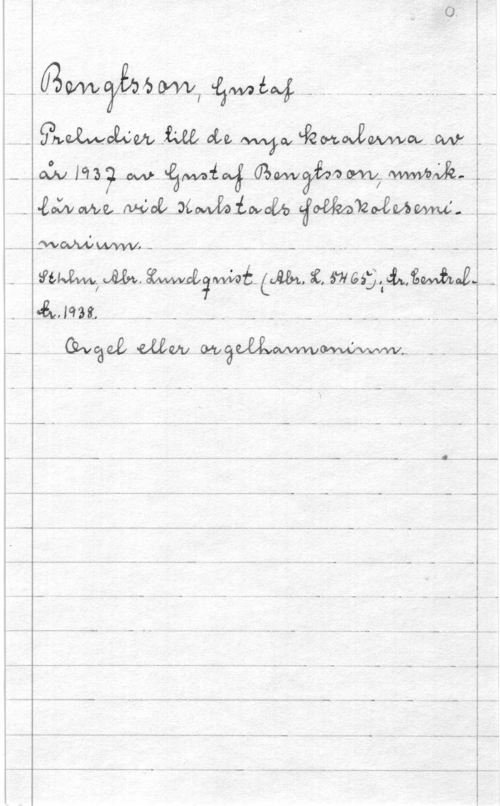 O.
Bengtsson, Gustaf
Preludier till de nya koralerna av
år 1937 av Gustaf Bengtsson, musik-
lärare vid Karlstads folkskolesemi-
narium.
Sthlm, Abr. Lundquist (Abr. L. 5465); tr. Central-
tr. 1938.
Orgel eller orgelharmonium.